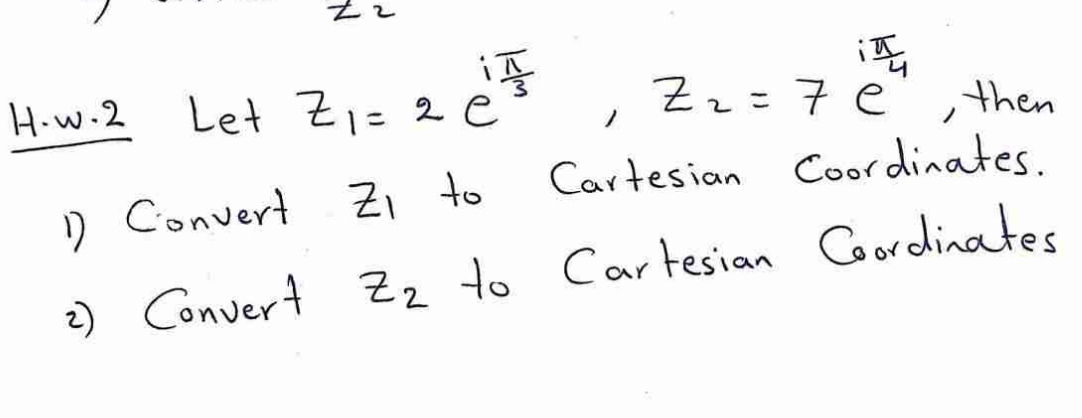 Z2
H.w.2 Let Z1 = 2 e^{i π/3} , Z2 = 7 e^{i π/4} , then
1) Convert Z1 to Cartesian Coordinates.
2) Convert Z2 to Cartesian Coordinates